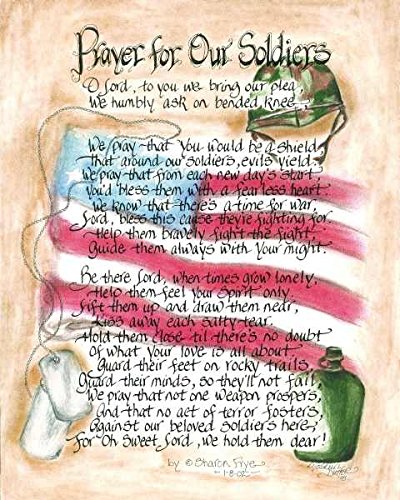 Prayer for Our Soldiers
O Lord, to you we bring our plea,
We humbly ask on bended knee,
We pray that You would be a shield
That around our soldiers, evils yield.
We pray that from each new day's start,
You'd bless them with a fearless heart.
We know that there's a time for war,
Lord, bless this cause they're fighting for.
Help them bravely fight the fight,
Guide them always with Your might.
Be there Lord, when times grow lonely,
Help them feel your Spirit only.
Lift them up and draw them near,
Kiss away each salty tear.
Hold them close 'til there's no doubt
of what Your love is all about.
Guard their feet on rocky trails,
Guard their minds, so they'll not fail,
We pray that not one weapon prospers,
And that no act of terror fosters,
Against our beloved Soldiers here,
For Oh Sweet Lord, we hold them dear!
by © Sharon Frye
1-8-02